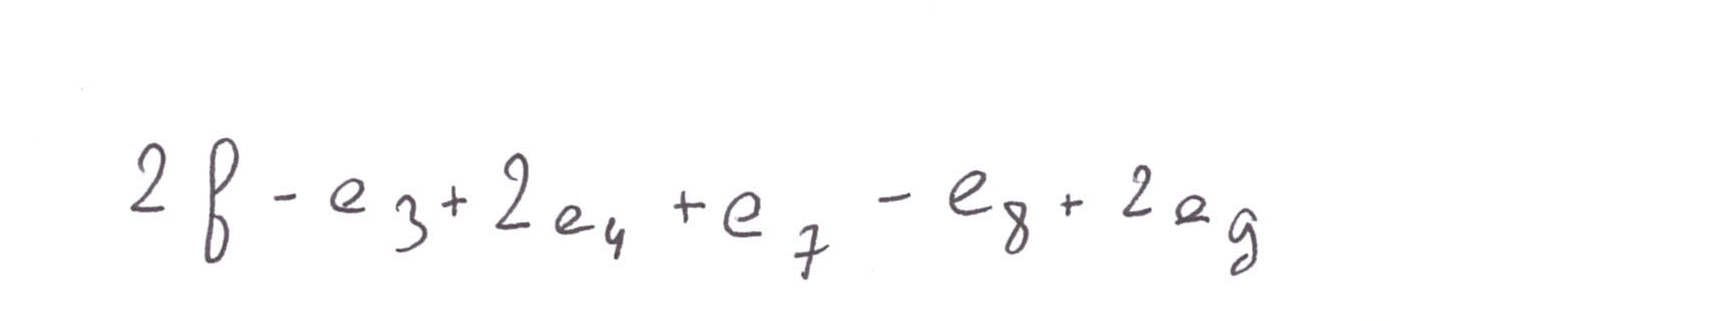 2f - e₃ + 2e₄ + e₇ - e₈ + 2e₉